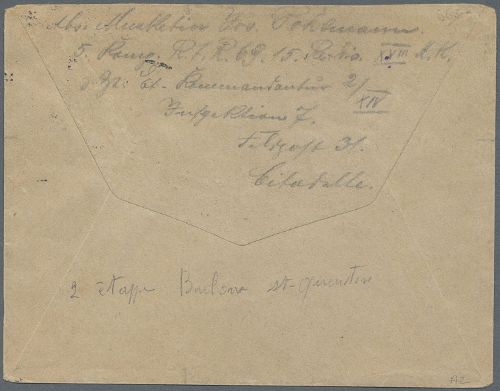 Abs: Musketier Jos. Pohlmann.
5. Komp. R. I. R. 69. 15. Res. Div. XVIII A. K.
z. Zt: Et. Kommandantur 2/XIV
Inspektion 7.
Feldpost 31.
Citadelle.
2 etappe st-quentin
AZ